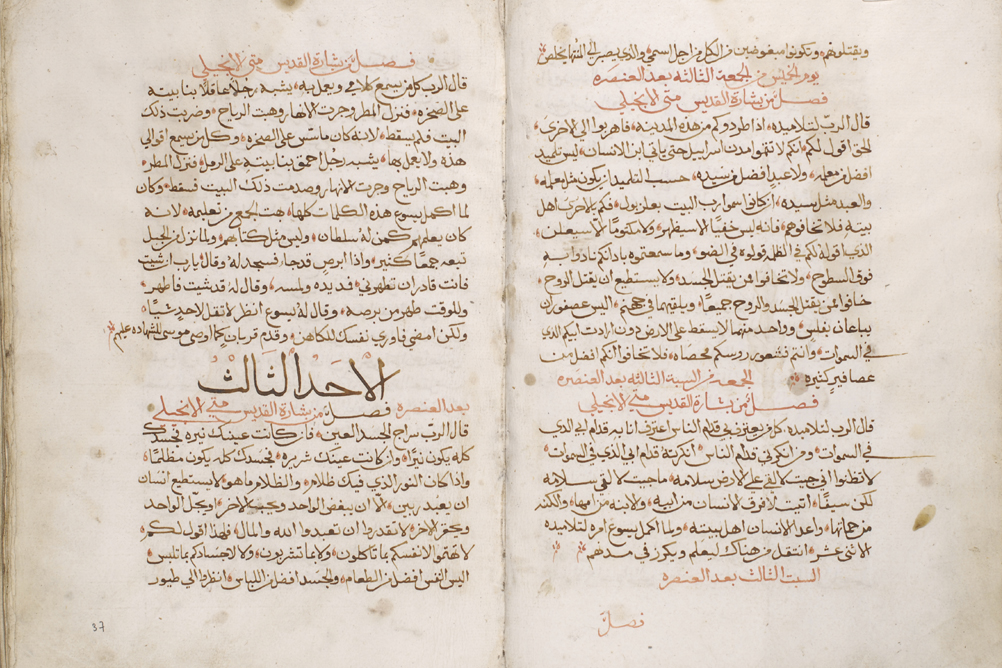 ويقتلونهم وتكونوا مبغوضين من الكل من اجل اسمي والذي يصبر الى المنتها يخلص
يوم الخميس من الجمعة الثالثه بعد العنصره
فصل من بشارة القديس متى الانجيلي
قال الرب لتلاميذه اذا طردوكم من هذه المدينه فاهربوا الى الاخرى
الحق اقول لكم انكم لا تتموا مدن اسراييل حتى ياتي ابن الانسان ليس تلميد
افضل من معلمه ولا عبد افضل من سيده حسب التلميد ان يكون مثل معلمه
والعبد مثل سيده ان كانوا سموا رب البيت بعلزبول فكم بالاحرى اهل
بيته فلا تخافوهم فانه ليس خفيًا الا سيظهر ولا مكتومًا الا سيعلن
الذي اقوله لكم في الظلمه قولوه في الضو وما سمعتموه باذانكم نادوا به
فوق السطوح ولا تخافوا ممن يقتل الجسد ولا يستطيع ان يقتل الروح
خافوا ممن يقتل الجسد والروح جميعًا ويلقيهما في جهنم اليس عصفوران
يباعان بفلس وواحد منهما لا يسقط على الارض دون ارادت ابيكم الذي
في السموات وانتم فشعور روسكم محصاه فلا تخافوا انكم افضل من
عصافير كثيره
الجمعه من السبة الثالثه بعد العنصره
فصل من بشارة القديس متى الانجيلي
قال الرب لتلاميذه كل من يعترف بي قدام الناس اعترف انا به قدام ابي الذي
في السموات ومن انكرني قدام الناس انكرته قدام ابي الذي في السموات
لا تظنوا اني جيت لالقي على الارض سلامه ما جيت لالقي سلامه
لكن سيفًا اتيت لافرق الانسان من ابيه والابنه من امها والكنه
من حماتها واعدا الانسان اهل بيته ولما اكمل يسوع امره لتلاميذه
الاثنى عشر انتقل من هناك ليعلم ويكرز في مدنهم
السبت الثالث بعد العنصره
فصل
فصل من بشارة القديس متى الانجيلي
قال الرب كل من يسمع كلامي ويعمل به يشبه رجلا عاقلا بنا بيته
على الصخره فنزل المطر وجرت الانهار وهبت الرياح وضربت ذلك
البيت فلم يسقط لانه كان ماسس على الصخره وكل من يسمع اقوالي
هذه ولا يعمل بها يشبه رجل احمق بنا بيته على الرمل فنزل المطر
وهبت الرياح وجرت الانهار وصدمت ذلك البيت فسقط وكان
لما اكمل يسوع هذه الكلمات كلها بهت الجمع من تعليمه لانه
كان يعلمهم كمن له سلطان وليس مثل كتابهم ولما نزل من الجبل
تبعه جمعًا كثير واذا ابرص قد جا فسجد له وقال يارب ان شيت
فانت قادر ان تطهرني فمد يده ولمسه وقال له قد شيت فاطهر
وللوقت طهر من برصه وقال له يسوع انظر لا تقل لاحد شيًا
ولكن امضي فاوري نفسك للكاهن وقدم قربان كما اوصى موسى للشهاده عليهم
الاحد الثالث
بعد العنصره فصل من بشارة القديس متى الانجيلي
قال الرب سراج الجسد العين فان كانت عينك نيره فجسدك
كله يكون نيرًا وان كانت عينك شريره فجسدك كله يكون مظلمًا
واذا كان النور الذي فيك ظلام والظلام ماهو لا يستطيع انسان
ان يعبد ربين الا ان يبغض الواحد ويحب الاخر او يجل الواحد
ويحقر الاخر لا تقدروا ان تعبدوا الله والمال فلهذا اقول لكم
لا تهتموا لانفسكم بما تاكلون ولا بما تشربون ولا لاجسادكم ما تلبس
اليس النفس افضل من الطعام والجسد افضل من اللباس انظروا الى طيور
37